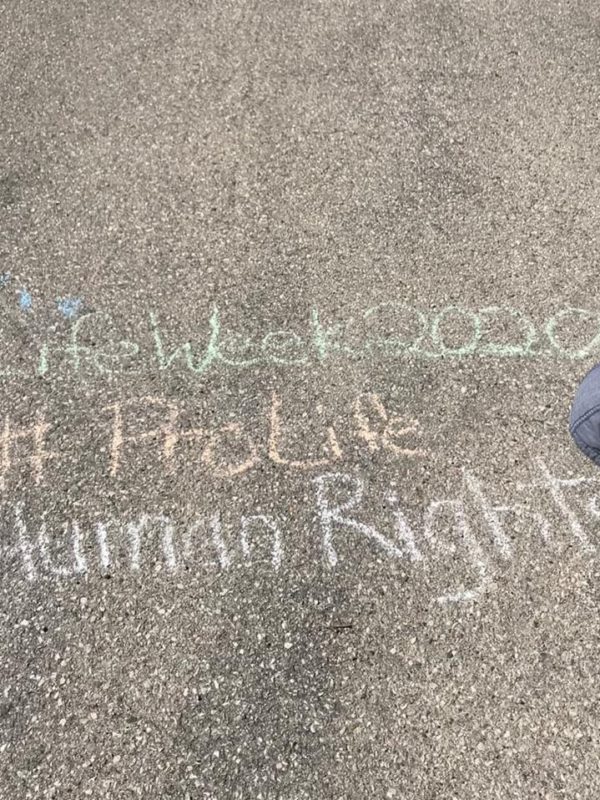 LifeWeek2020
# ProLife
Human Rights